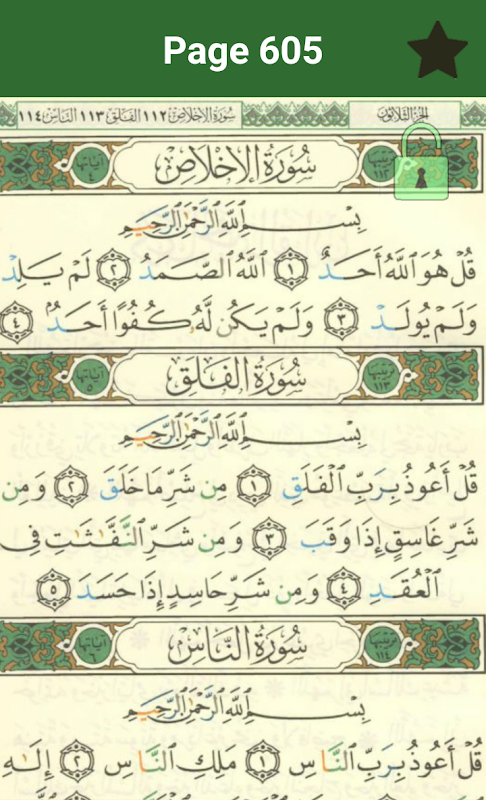 Page 605
سُورَةُ الإِخْلَاصِ ١١٢ الفَلَقِ ١١٣ النَّاسِ ١١٤ الجُزْءُ الثَّلَاثُونَ
سُورَةُ الإِخْلَاصِ
بِسْمِ اللَّهِ الرَّحْمَٰنِ الرَّحِيمِ
قُلْ هُوَ اللَّهُ أَحَدٌ ١ اللَّهُ الصَّمَدُ ٢ لَمْ يَلِدْ
وَلَمْ يُولَدْ ٣ وَلَمْ يَكُن لَّهُ كُفُوًا أَحَدٌ ٤
سُورَةُ الفَلَقِ
بِسْمِ اللَّهِ الرَّحْمَٰنِ الرَّحِيمِ
قُلْ أَعُوذُ بِرَبِّ الْفَلَقِ ١ مِن شَرِّ مَا خَلَقَ ٢ وَمِن
شَرِّ غَاسِقٍ إِذَا وَقَبَ ٣ وَمِن شَرِّ النَّفَّٰثَٰتِ فِي
الْعُقَدِ ٤ وَمِن شَرِّ حَاسِدٍ إِذَا حَسَدَ ٥
سُورَةُ النَّاسِ
بِسْمِ اللَّهِ الرَّحْمَٰنِ الرَّحِيمِ
قُلْ أَعُوذُ بِرَبِّ النَّاسِ ١ مَلِكِ النَّاسِ ٢ إِلَٰهِ